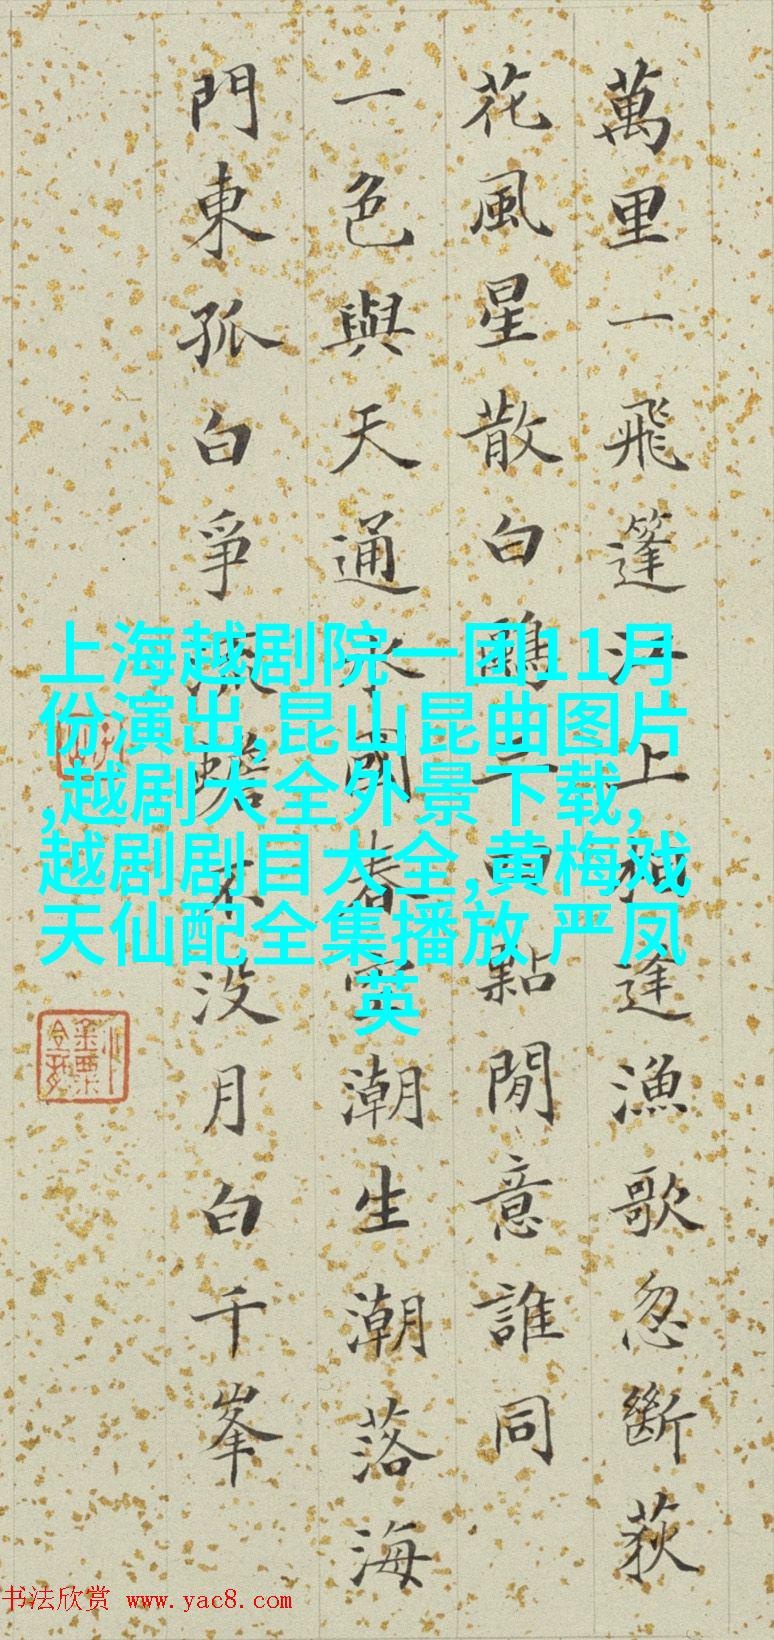 萬里一飛篷江上相逢漁歌忽斷荻
花風星散白鷗三四點閒意誰同
一色與天通水國春空潮生潮落海
門東孤白爭流蟾没月白千峯
上海越剧院一团11月
份演出,昆山昆曲图片
,越剧大全外景下载,
越剧剧目大全,黄梅戏
天仙配全集播放 严凤
英
书法欣赏 www.yac8.com